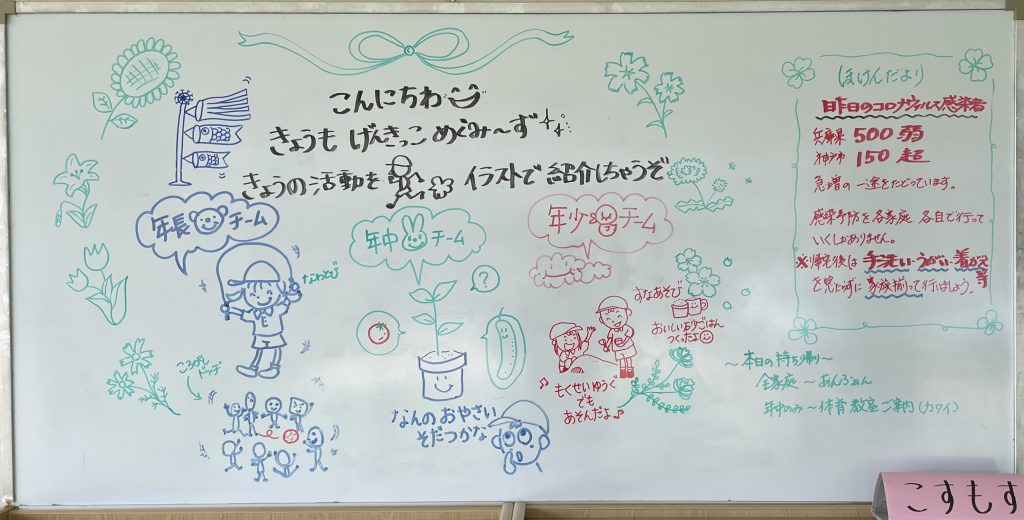 こんにちわ
きょうも げんきっこ めぐみ〜ず
きょうの活動を イラストで 紹介しちゃうぞ
年長 チーム
なわとび
ころがし
ドッヂ
年中 チーム
?
なんの おやさい
そだつかな
年少& チーム
すなあそび
おいしいお砂ごはん
つくったよ
♪もくせいゆうぐ
でも
あそんだよ♪
ほけんだより
昨日のコロナウィルス感染者
兵庫県 500 弱
神戸市 150 超
急増の一途をたどっています。
感染予防を各家庭 各自で行って
いくしかありません。
※帰宅後は 手洗い・うがい・着がえ
等
を忘れずに 家族揃って行いましょう。
〜本日の持ち帰り〜
全家庭〜あんふぁん
年中のみ〜体育教室ご案内(カワイ)
こすもす